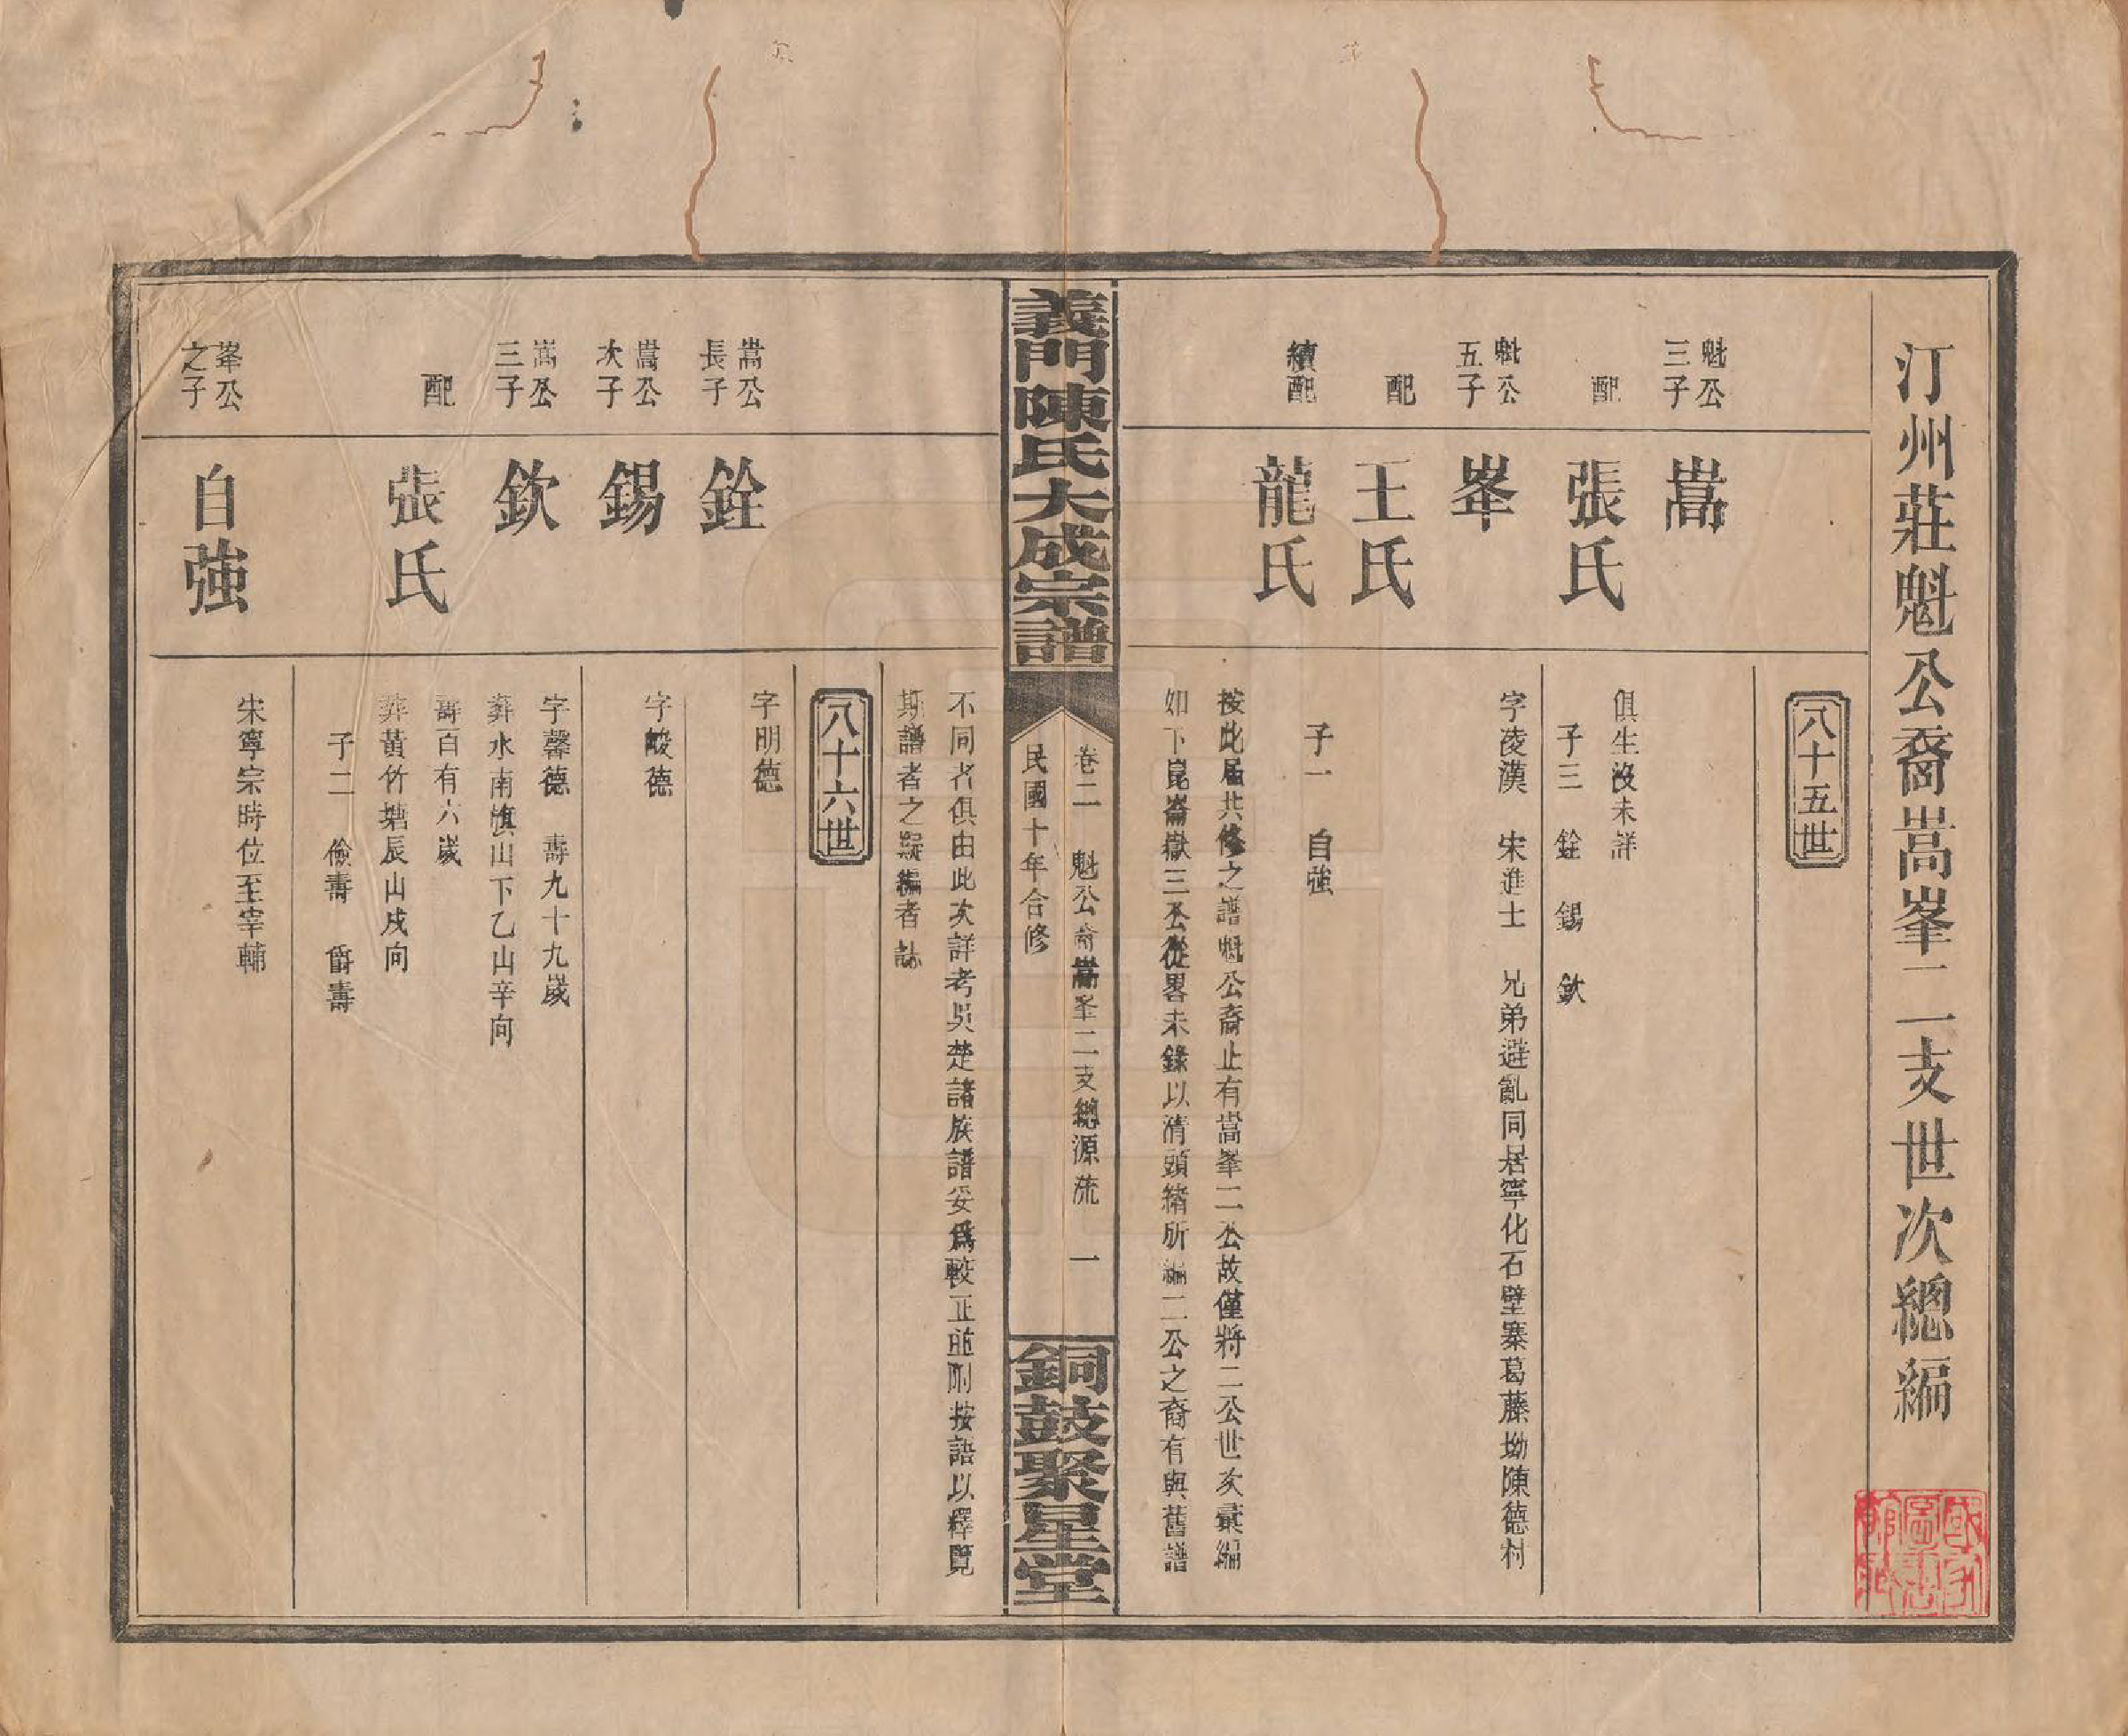 汀州莊魁公裔嵩峯二支世次總編
八十五世
魁公
三子
嵩
俱生沒未詳
配
張氏
子三 銓 錫 欽
魁公
五子
峯
字淩漢 宋進士 兄弟避亂同居寧化石壁寨葛藤坳陳德村
配
王氏
續配
龍氏
子一 自強
按此届共修之譜魁公裔止有嵩峯二公故僅將二公世次彙編
如下崑崙嶽三公從畧未錄以清頭緒所編二公之裔有與舊譜
義門陳氏大成宗譜
卷二 魁公裔嵩峯二支總源流 一
民國十年合修
銅鼓聚星堂
不同者俱由此次詳考吳楚諸族譜妥爲較正並附按語以釋覽
斯譜者之疑編者誌
八十六世
嵩公
長子
銓
字明德
嵩公
次子
錫
字峻德
嵩公
三子
欽
字馨德 壽九十九歲
葬水南旗山下乙山辛向
配
張氏
壽百有六歲
葬黃竹塘辰山戌向
子二 儉壽 爵壽
峯公
之子
自強
宋寧宗時位至宰輔
國家
圖書
館藏